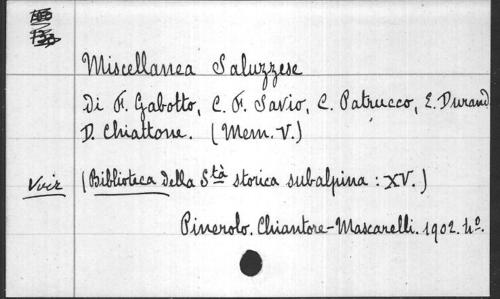 Miscellanea Saluzzese
di F. Gabotto, C. F. Savio, C. Patrucco, E. Durand
D. Chiattone. (Mem. V.)
Voir (Biblioteca della Stà storica subalpina : XV.)
Pinerolo. Chiantore-Mascarelli. 1902. 4º.